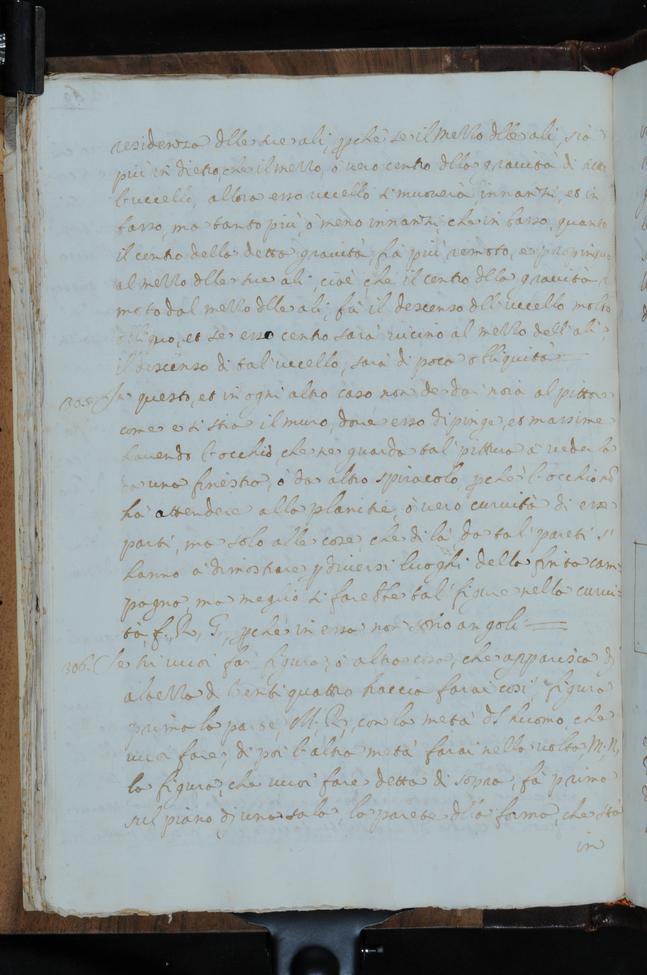 residenza delle sue ali, pchè se il mezzo delle ali, sia
più in dietro, che il mezzo, ò vero centro della gravità di
l'uccello, allora esso uccello si muoverà innanzi, et in
basso, ma tanto più, ò meno innanzi, che in basso, quanto
il centro della detta gravità fia più remoto, e propinquo
al mezzo delle sue ali, cioè che il centro della gravità
moto dal mezzo delle ali, fà il descenso dell'uccello molto
obliquo, et se esso centro sarà vicino al mezzo dell'ali,
il discenso di tal'uccello, sarà di poca obliquità
305. In questo, et in ogni altro caso non de dar noia al pittore
come si stia il muro, dove esso dipinge, et massime
havendo l'occhio, che riguarda tal'pittura à vederla
una finestra, ò da altro spiracolo, pchè l'occhio nō
hà attendere alla planitie, ò vero curvità di esse
parti, ma solo alle cose che di là da tal'pareti si
hanno à dimostrare p diversi luoghi della finita cam:
pagna, ma meglio si farebbe tal'figure nella curvi:
tà, f. R, G, pchè in essa non sono angoli
306. Se tu vuoi far figura, ò altra cosa, che apparisca di
altezza di venti quattro braccia farai così, figura
prima la parete, M. R, con la metà del huomo, che
vuoi fare, di poi l'altra metà farai nella volta, M. N,
la figura, che vuoi fare detta di sopra, fà prima
sul piano di una sala, la parete della forma, che stà
in